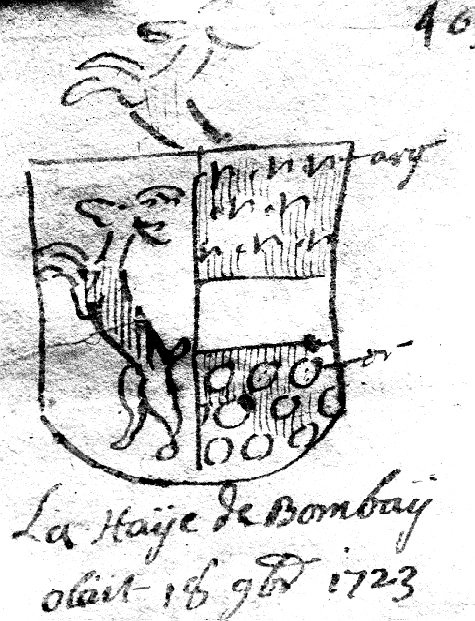 arg
or
La Haije de Bombaij
obiit 18 9br 1723